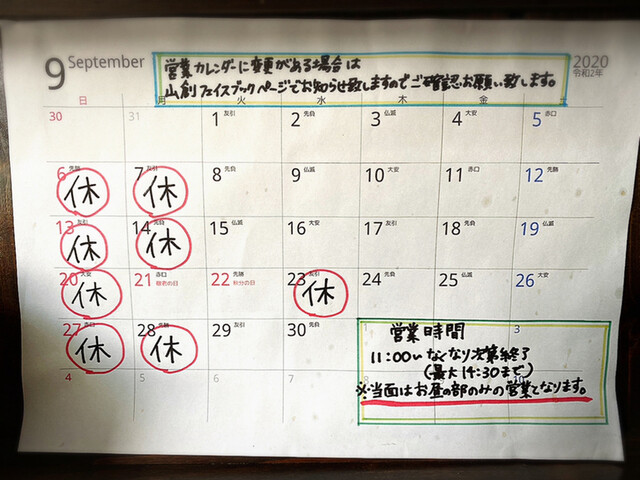 9 September
営業カレンダーに変更がある場合は
山創フェイスブックページでお知らせ致しますのでご確認お願い致します。
2020
令和2年
日 月 火 水 木 金 土
30 31 1 友引 2 先負 3 仏滅 4 大安 5 赤口
6 先勝 休 7 友引 休 8 先負 9 仏滅 10 大安 11 赤口 12 先勝
13 友引 休 14 先負 休 15 仏滅 16 大安 17 友引 18 先負 19 仏滅
20 大安 休 21 赤口 敬老の日 22 先勝 秋分の日 23 友引 休 24 先負 25 仏滅 26 大安
27 赤口 休 28 先勝 休 29 友引 30 先負 1 3
営業時間
11:00〜なくなり次第終了
(最大14:30まで)
※当面はお昼の部のみの営業となります。
4 5 6 7 8